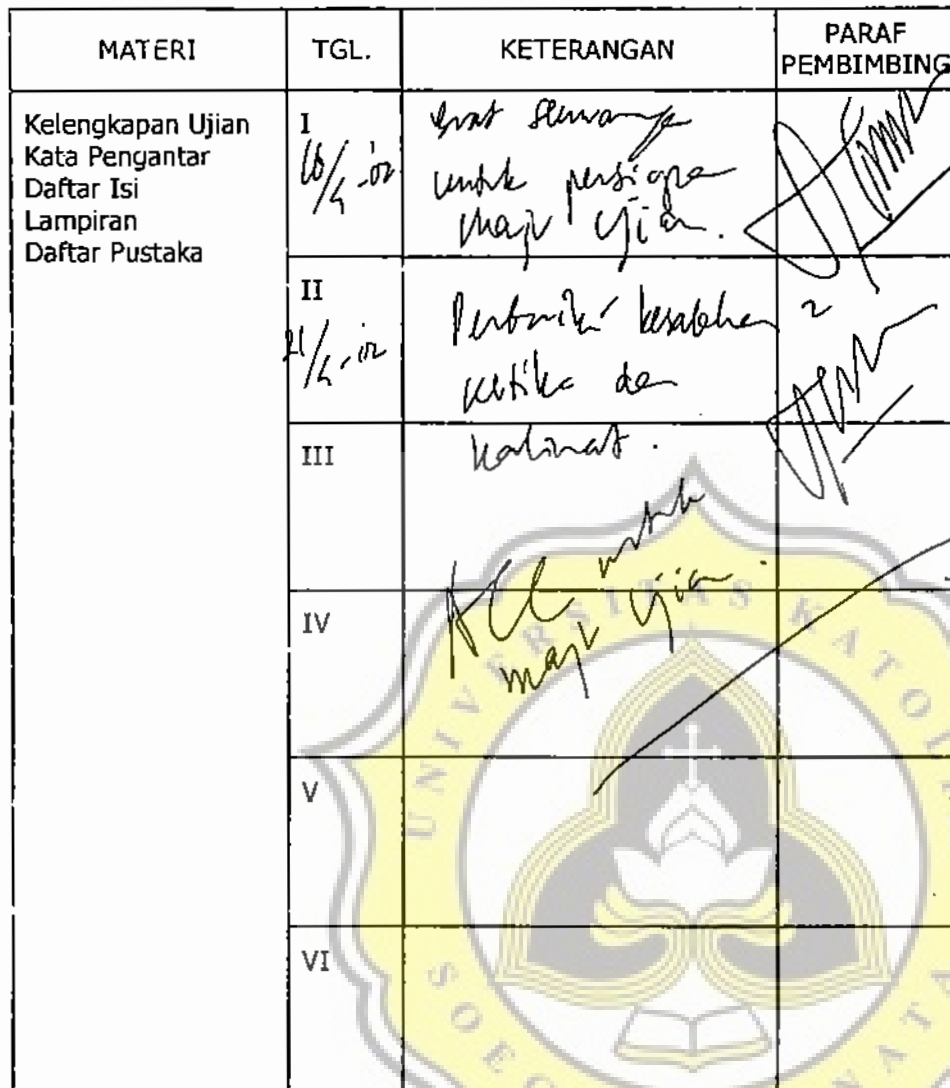 MATERI TGL. KETERANGAN PARAF PEMBIMBING
Kelengkapan Ujian
Kata Pengantar
Daftar Isi
Lampiran
Daftar Pustaka
I
untuk persiapan
maju ujian.
II
Perbaiki kesalahan 2
ketika dan
kalimat.
III
ACC untuk
maju ujian.
IV
V
VI
UNIVERSITAS KATOLIK
SOEGIJAPRANATA